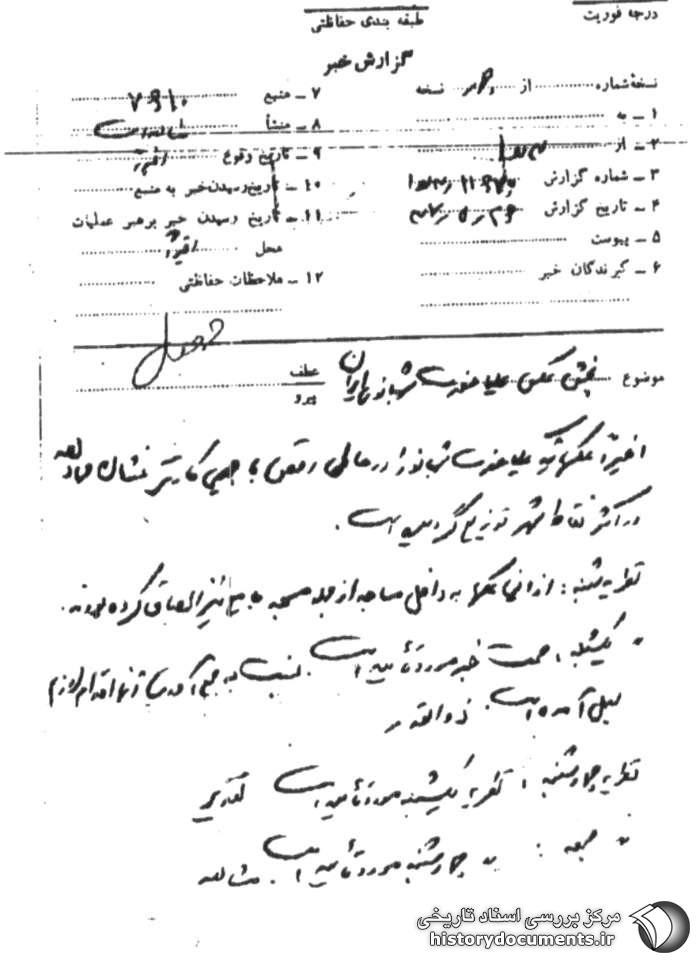 درجه فوریت
طبقه بندی حفاظتی
گزارش خبر
نسخهٔ شماره از نسخه
۱ ـ به
۲ ـ از
۳ ـ شماره گزارش
۴ ـ تاریخ گزارش
۵ ـ پیوست
۶ ـ گیرندگان خبر
۷ ـ منبع ۷۹۱۰
۸ ـ منشأ
۹ ـ تاریخ وقوع اخیراً
۱۰ ـ تاریخ رسیدن خبر به منبع
۱۱ ـ تاریخ رسیدن خبر برهبر عملیات
محل اخیراً
۱۲ ـ ملاحظات حفاظتی
موضوع پخش عکس علیاحضرت شهبانو ایران
عطف
پیرو
اخیراً علیاحضرت شهبانو را در حالی رقص با جیمی کارتر نشان
در اکثر نقاط شهر توزیع گردیده است.
نظریه شنبه: از این عکسها به داخل مساجد از جمله مسجد جامع نیز الصاق کرده بودند.
یکشنبه، صحت خبر مورد تأیید است. نسبت به جمع آوری آنها اقدام لازم
بعمل آمده است. ذوالقدر
نظریه چهارشنبه: نظریه یکشنبه مورد تأیید است
جمعه: چهارشنبه مورد تأیید است.
مرکز بررسی اسناد تاریخی
historydocuments.ir